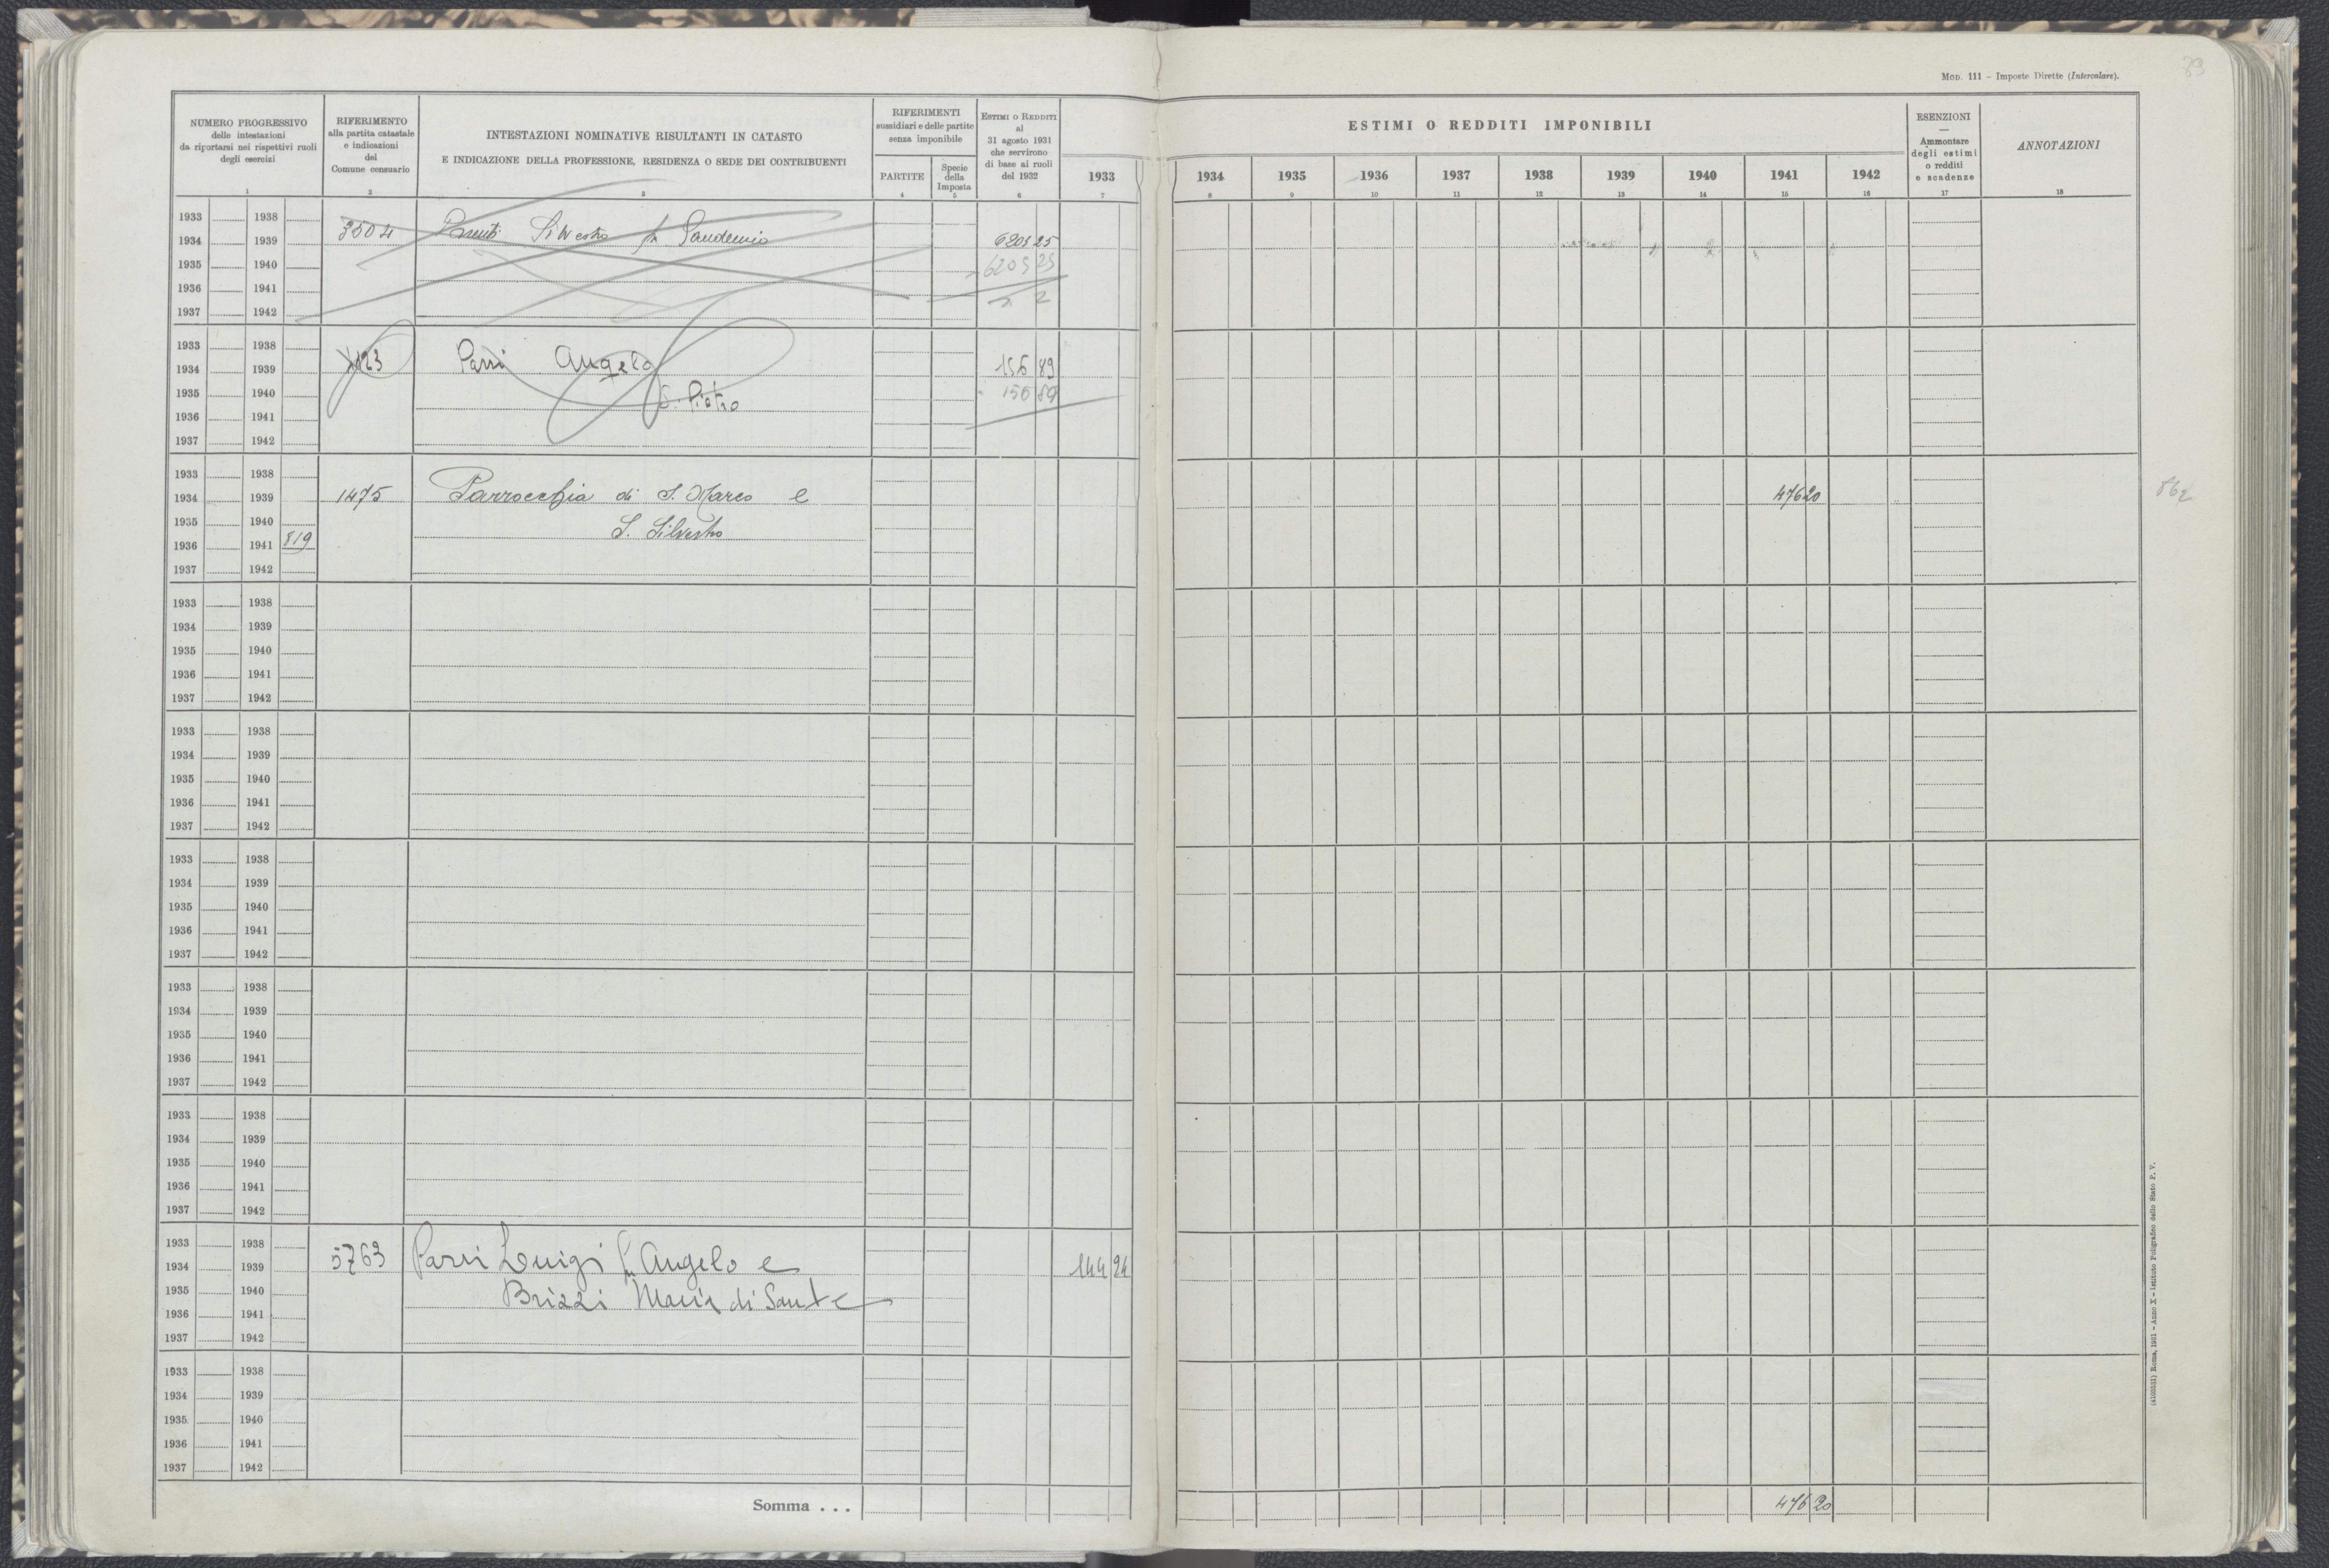 MOD. 111 – Imposte Dirette (Intercalare).
NUMERO PROGRESSIVO
delle intestazioni
da riportarsi nei rispettivi ruoli
degli esercizi
1
RIFERIMENTO
alla partita catastale
e indicazioni
del
Comune censuario
2
INTESTAZIONI NOMINATIVE RISULTANTI IN CATASTO
E INDICAZIONE DELLA PROFESSIONE, RESIDENZA O SEDE DEI CONTRIBUENTI
3
RIFERIMENTI
sussidiari e delle partite
senza imponibile
PARTITE
4
Specie
della
Imposta
5
ESTIMI O REDDITI
al
31 agosto 1931
che servirono
di base ai ruoli
del 1932
6
ESTIMI O REDDITI IMPONIBILI
1933 1934 1935 1936 1937 1938 1939 1940 1941 1942
7 8 9 10 11 12 13 14 15 16
ESENZIONI
—
Ammontare
degli estimi
o redditi
e scadenze
17
ANNOTAZIONI
18
1933 1938
3504 Silvestro fu
1934 1939
6205 25
1935 1940
6205 25
1936 1941
1937 1942
1933 1938
1934 1939
Parri Angelo 156 89
1935 1940
di Pietro 156 89
1936 1941
1937 1942
1933 1938
1934 1939
1475 Parrocchia di S. Marco e 476 20
1935 1940
S. Silvestro
1936 1941 819
1937 1942
1933 1938
1934 1939
1935 1940
1936 1941
1937 1942
1933 1938
1934 1939
1935 1940
1936 1941
1937 1942
1933 1938
1934 1939
1935 1940
1936 1941
1937 1942
1933 1938
1934 1939
1935 1940
1936 1941
1937 1942
1933 1938
1934 1939
1935 1940
1936 1941
1937 1942
1933 1938
5763 Parri Luigi fu Angelo e 144 24
1934 1939
1935 1940
Brizzi Maria di Sante
1936 1941
1937 1942
1933 1938
1934 1939
1935 1940
1936 1941
1937 1942
Somma . . . 476 20